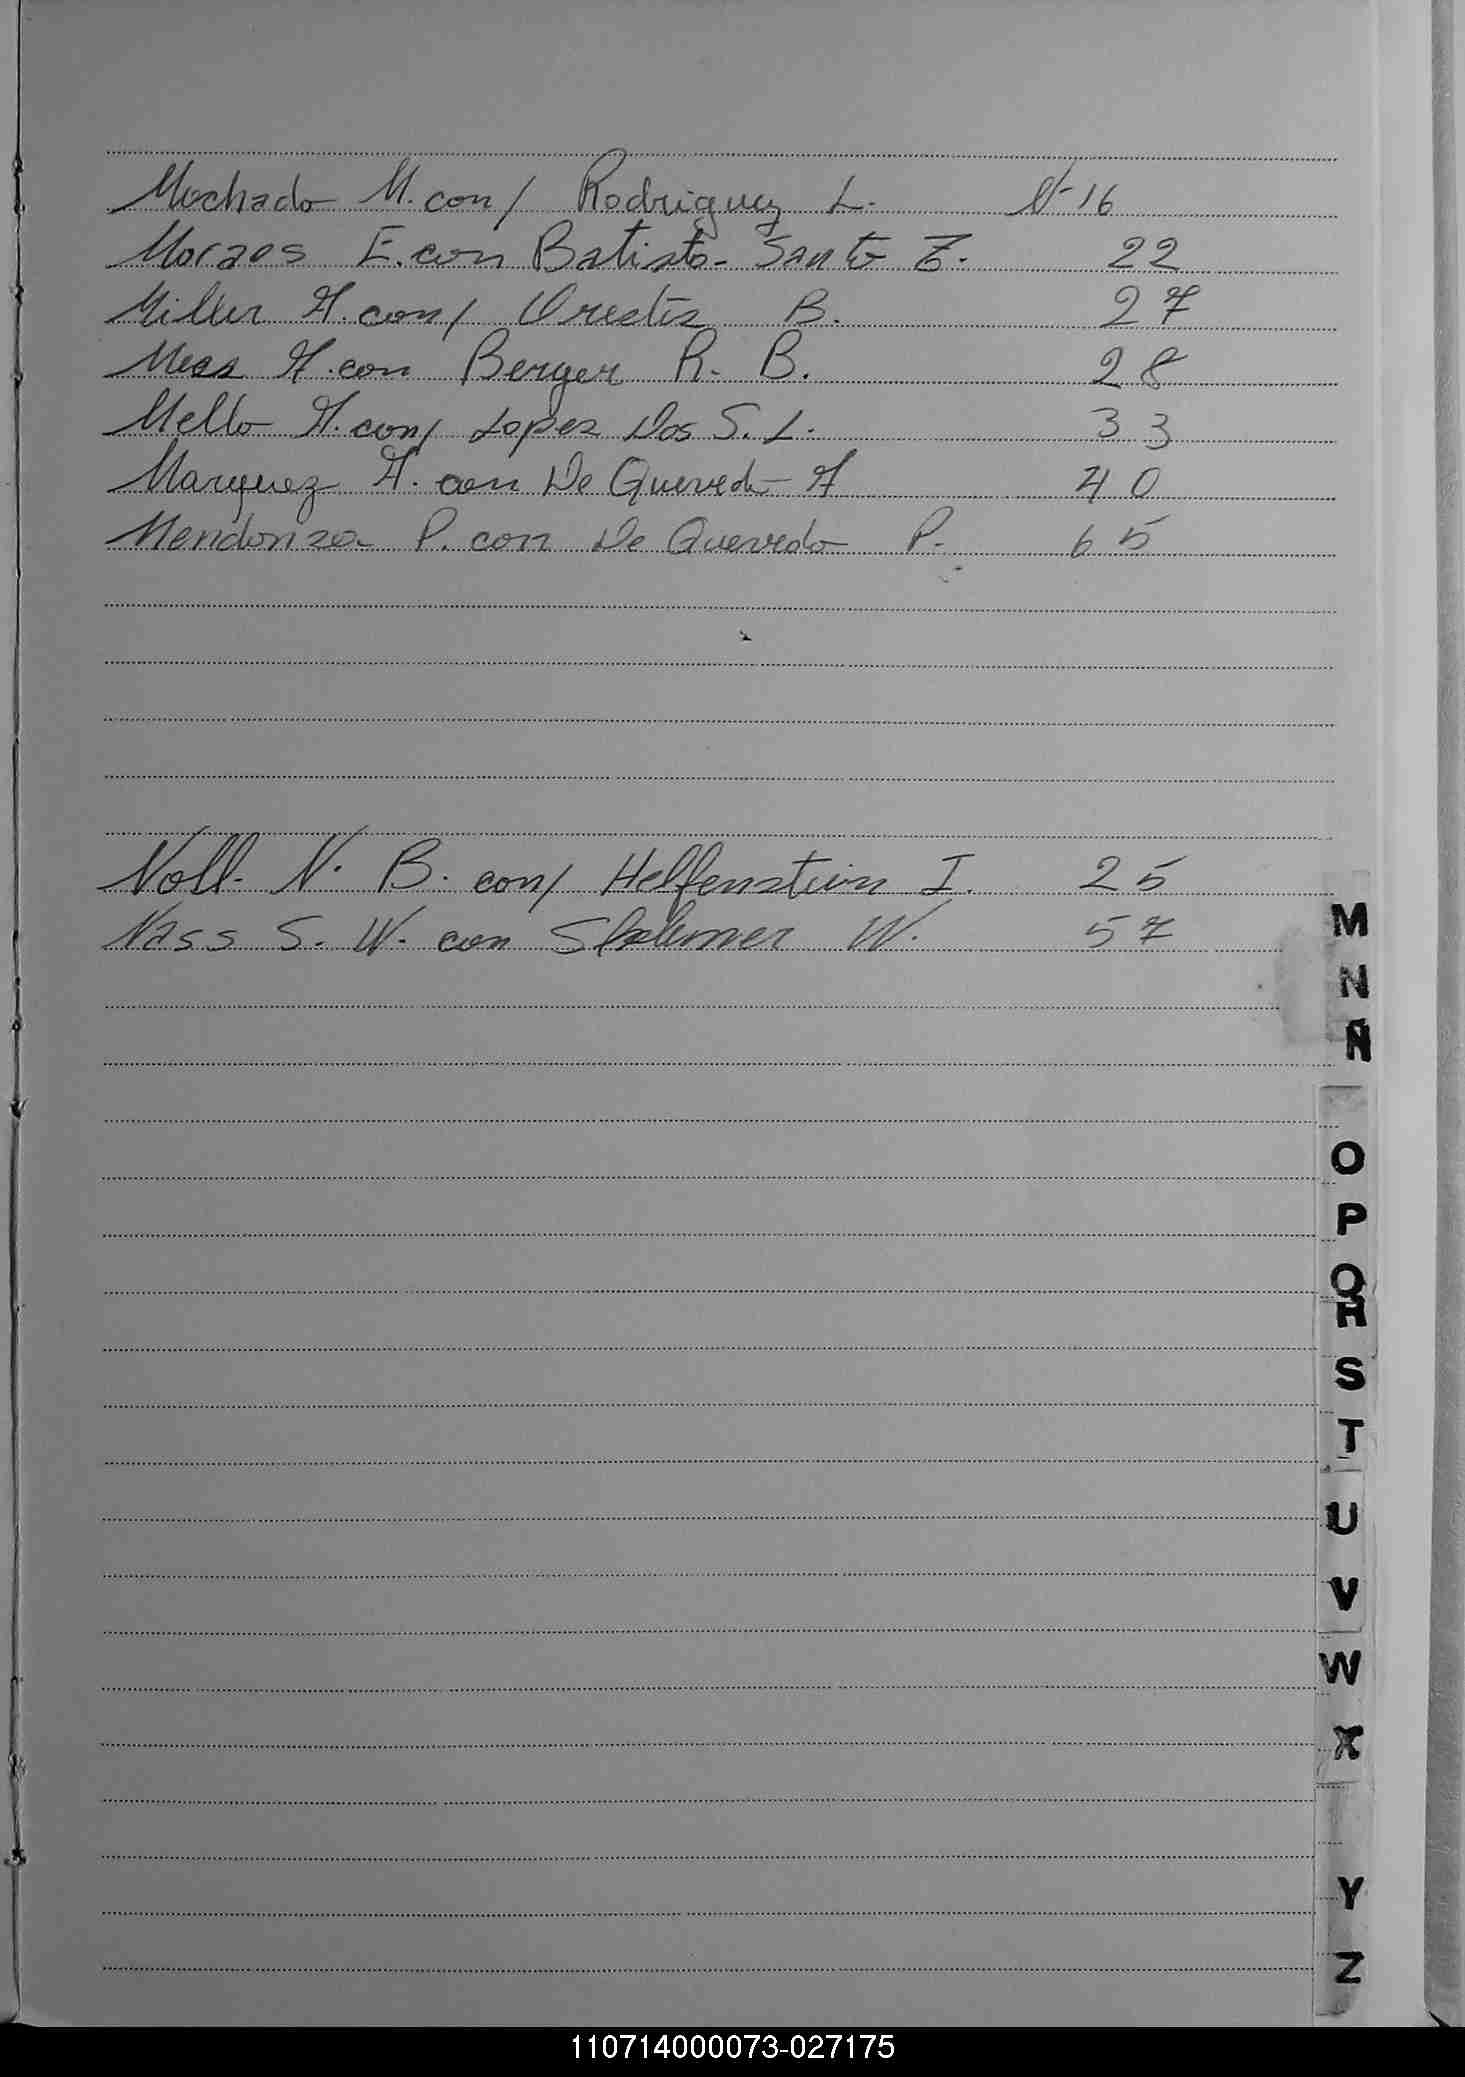 Machado M. con/ Rodriguez L. N- 16
Moraes E. con Batista- Santo Z. 22
Miller A. con/ Orestis B. 27
A. con Berger R. B. 28
Mello A. con/ Lopez Dos S. L. 33
Marquez A. con De Quevedo A 40
Mendonza P. con De Quevedo P. 65
Noll. N. B. con/ Helfenstein I. 25
Nass S. W. con W. 57
M
N
Ñ
O
P
Q
R
S
T
U
V
W
X
Y
Z
110714000073-027175